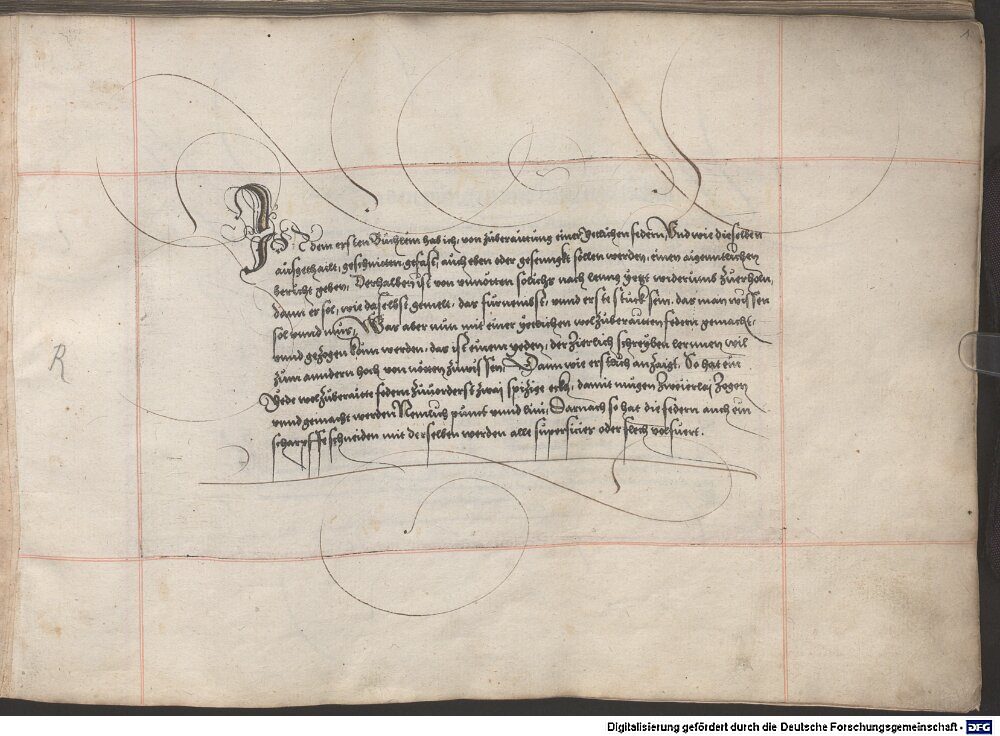 1
IN dem ersten Büchlein hab ich, von zuberaitung einer Yetlichen federn, Und wie dieselben
ausgethailt, geschnitten, gefast, auch eben oder gesenngkt sollen werden, einen aigenntlichen
bericht geben, Derhalben ist von unnötten solichs nach lenng yetzt widerumb zuerholn,
dann er sol, wie daselbst gemelt, das fürnembst, unnd erste stuck sein, das man wissen
sol unnd mus, Was aber nun mit einer yetlichen wolzuberaitten federn gemacht,
unnd gezogen könn werden, das ist einem yeden, der zierlich schreyben lernnen wil
zum anndern hoch von nötten zuwissen, Dann wie erstlich anzaigt, So hat ein
Yede wolzuberaitte federn zuvorderst zwai spizige eckh, damit mügen zwaierlai zogen
unnd gemacht werden Nemlich punct unnd lini, Darnach so hat die federn auch ein
scharpffe schneiden mit derselben werden alle superficies oder flech volfuert.
R
Digitalisierung gefördert durch die Deutsche Forschungsgemeinschaft - DFG